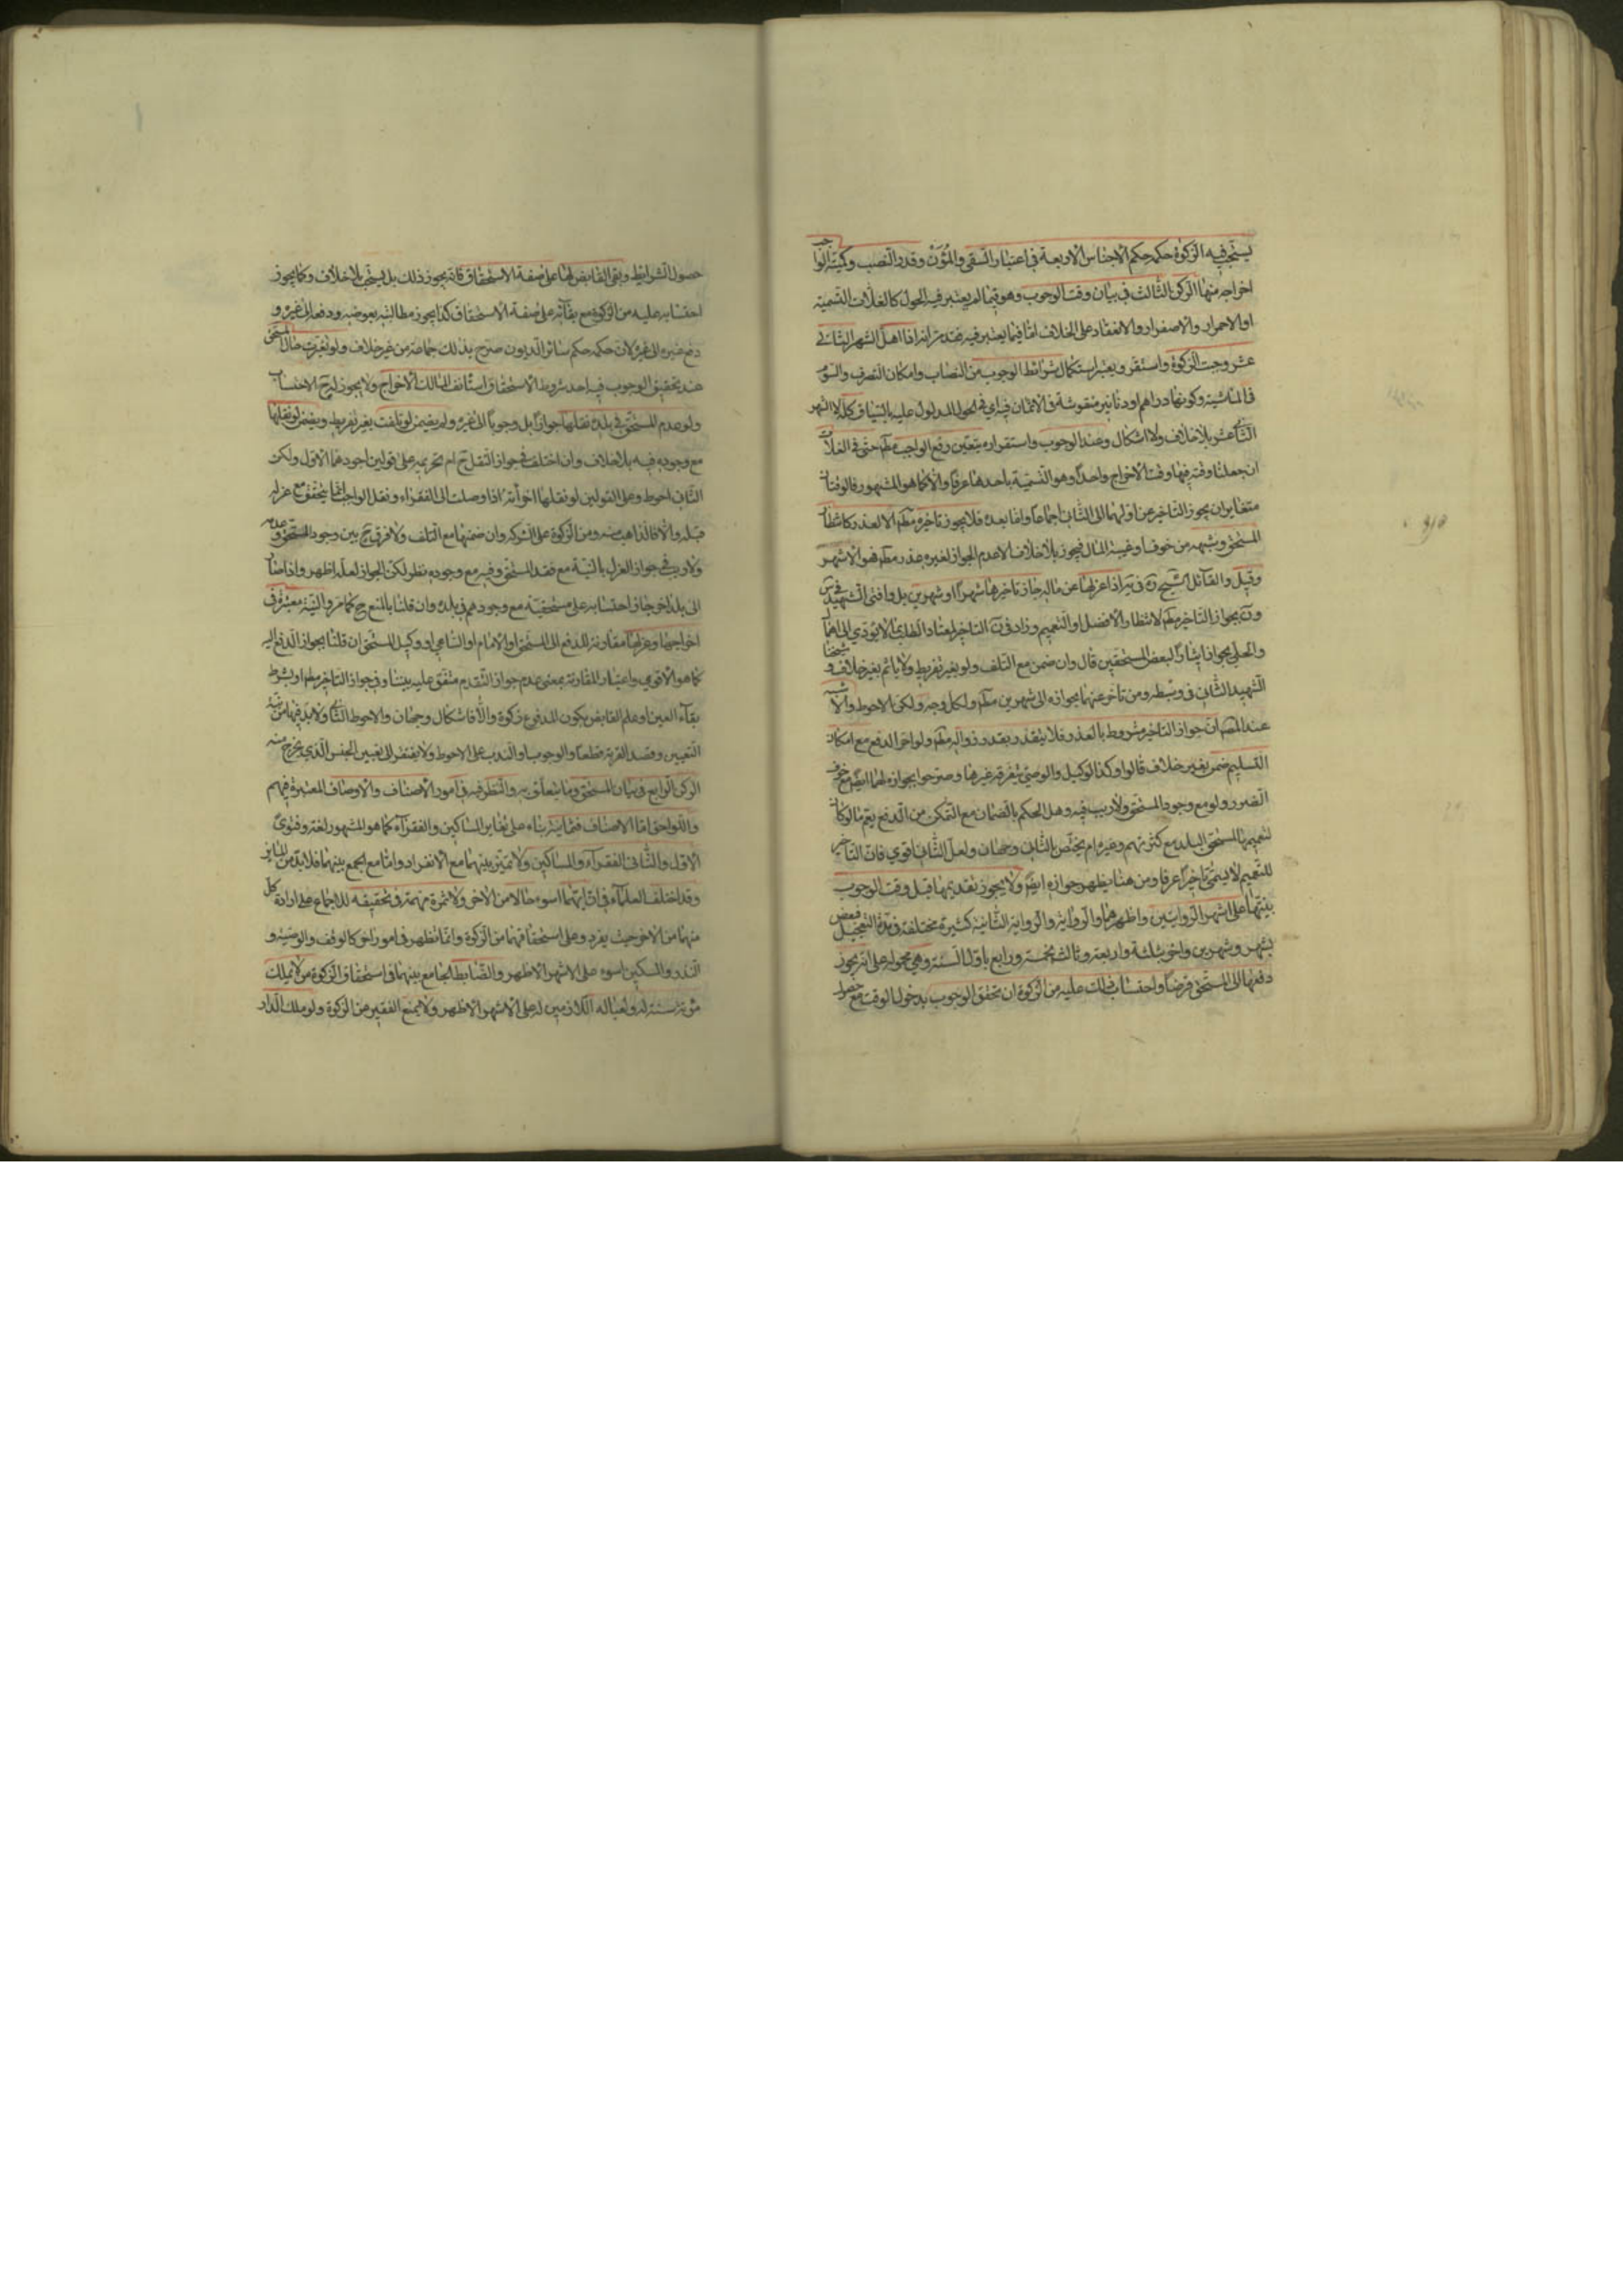 يستحب فيه الزكوة حكمه حكم الاجناس الاربعة في اعتبار السقي والمؤن وقدر النصب وكمية الواجب
اخراجه منها الركن الثالث في بيان وقت الوجوب وهو فيما لم يعتبر فيه الحول كالغلات التسمية
او الاحمرار والاصفرار والانعقاد على الخلاف اما فيما يعتبر فيه فقد مر انه اذا اهل الشهر الثاني
عشر وجبت الزكوة واستقر ويعتبر استكمال شرائط الوجوب من النصاب وامكان التصرف والسوم
في الماشية وكونها دراهم او دنانير منقوشة في الاثمان فيه اي في الحول المدلول عليه بالسياق كله لا الشهر
الثاني عشر بلا خلاف ولا اشكال وعند الوجوب واستقراره يتعين دفع الواجب مطلقا حتى في الغلات
ان جعلنا وقته فيها وقت الاخراج واحدا وهو التسمية باحدهما عرفا والا كما هو المشهور فالوقتان
متغايران يجوز التاخير عن اولهما الى الثاني اجماعا واما بعده فلا يجوز تاخيره مطلقا الا لعذر كانتظار
المستحق وشبهه من خوف او غيبة المال فيجوز بلا خلاف الا عدم الجواز لغيره عذر مطلقا فهو الاشهر
وقيل والقائل الشيخ ره في يه اذا عزلها عن ماله جاز تاخيرها شهرا او شهرين بل وافتى الشهيد في س
ون بجواز التاخير مطلقا لانتظار الافضل او التعميم وزاد في ن التاخير لمعتاد الطلب بما لا يؤدي الى الاهمال
والحلي بجوازه ايثارا لبعض المستحقين قال وان ضمن مع التلف ولو بغير تفريط ولا ياثم بغير خلاف وشيخنا
الشهيد الثاني في وتبعه ومن تاخر عنهما بجوازه الى شهرين مطلقا ولكل وجه ولكن الاحوط والاشبه
عند المصنف ان جواز التاخير مشروط بالعذر فلا يتقدر بقدر زواله مطلقا ولو اخر الدفع مع امكان
التسليم ضمن بغير خلاف قالوا وكذا الوكيل والوصي بتفرقة غيرها وصرحوا بجوازه لهما ايضا مع خوف
الضرر ولو مع وجود المستحق ولا ريب فيه وهل الحكم بالضمان مع التمكن من الدفع يعم ما لو كان
لتعميمها لمستحقي البلد مع كثرتهم وغيره ام يختص بالثاني وجهان ولعل الثاني اقوى فان التاخير
للتعميم لا يسمى تاخيرا عرفا ومن هنا يظهر جوازه ايضا ولا يجوز تقديمها قبل وقت الوجوب
بنيتها على اشهر الروايتين واظهرهما والرواية الثانية كثيرة مختلفة في مدة التعجيل فبعض
بشهر وشهرين واخرى بثلثة واربعة وثالث بخمسة ورابع باول السنة وهي محمولة على انه يجوز
دفعها الى المستحق قرضا واحتساب ذلك عليه من الزكوة ان تحقق الوجوب بدخول الوقت مع حصول
حصول الشرائط وبقي القابض لها على صفة الاستحقاق فانه يجوز ذلك بل يستحب بلا خلاف وكما يجوز
احتسابه عليه من الزكوة مع بقائه على صفة الاستحقاق كذا يجوز مطالبته بعوضه ودفعه الى غيره و
دفع غيره الى غيره لان حكمه حكم سائر الديون صرح بذلك جماعة من غير خلاف ولو تغيرت حال المستحق
عند تحقيق الوجوب فيه احد شروط الاستحقاق استانف المالك الاخراج ولا يجوز له ح الاحتساب
ولو عدم المستحق في بلده نقلها جوازا بل وجوبا الى غيره ولم يضمن لو تلفت بغير تفريط ويضمن لو نقلها
مع وجوده فيه بلا خلاف وان اختلف في جواز النقل ح ام تحريمه على قولين اجودهما الاول ولكن
الثاني احوط وعلى القولين لو نقلها اجزأته اذا وصلت الى الفقراء ونقل الواجب انما يتحقق مع عزله
قبله والا فالذاهب منه ومن الزكوة على الشركة وان ضمنها مع التلف ولا فرق ح بين وجود المستحق وعدمه
ولا ريب في جواز العزل بالنية مع فقد المستحق وفيه مع وجوده نظر لكن الجواز لعله اظهر واذا صار
الى بلد اخر جاز احتسابه على مستحقيه مع وجودهم في بلده وان قلنا بالمنع ح كما مر والنية معتبرة في
اخراجها وعزلها مقارنة للدفع الى المستحق او الامام او الساعي او وكيل المستحق ان قلنا بجواز الدفع اليه
كما هو الاقوى واعتبار المقارنة بمعنى عدم جواز التقدم متفق عليه بيننا وفي جواز التاخير مطلقا او بشرط
بقاء العين او علم القابض بكون المدفوع زكوة والا فاشكال وجهان والاحوط الثاني ولا بد فيها من نية
التعيين وقصد القربة قطعا والوجوب والندب على الاحوط ولا يفتقر الى تعيين الجنس الذي يخرج منه
الركن الرابع في بيان المستحق وما يتعلق به والنظر فيه في امور الاصناف والاوصاف المعتبرة فيهم
واللواحق اما الاصناف فثمانية بناء على تغاير المساكين والفقراء كما هو المشهور لغة وفتوى
الاول والثاني الفقراء والمساكين ولا تميز بينهما مع الانفراد واما مع الجمع بينهما فلا بد من المائز
وقد اختلف العلماء في ان ايهما اسوء حالا من الاخر ولا ثمرة مهمة في تحقيقه للاجماع على ارادة كل
منهما من الاخر حيث يفرد وعلى استحقاقهما من الزكوة وانما تظهر في امور اخر كالوقف والوصية و
النذر والمسكين اسوء على الاشهر الاظهر والضابط الجامع بينهما في استحقاق الزكوة من لا يملك
مؤنة سنته له ولعياله اللازمين له على الاشهر الاظهر ولا يمنع الفقير من الزكوة ولو ملك الدار